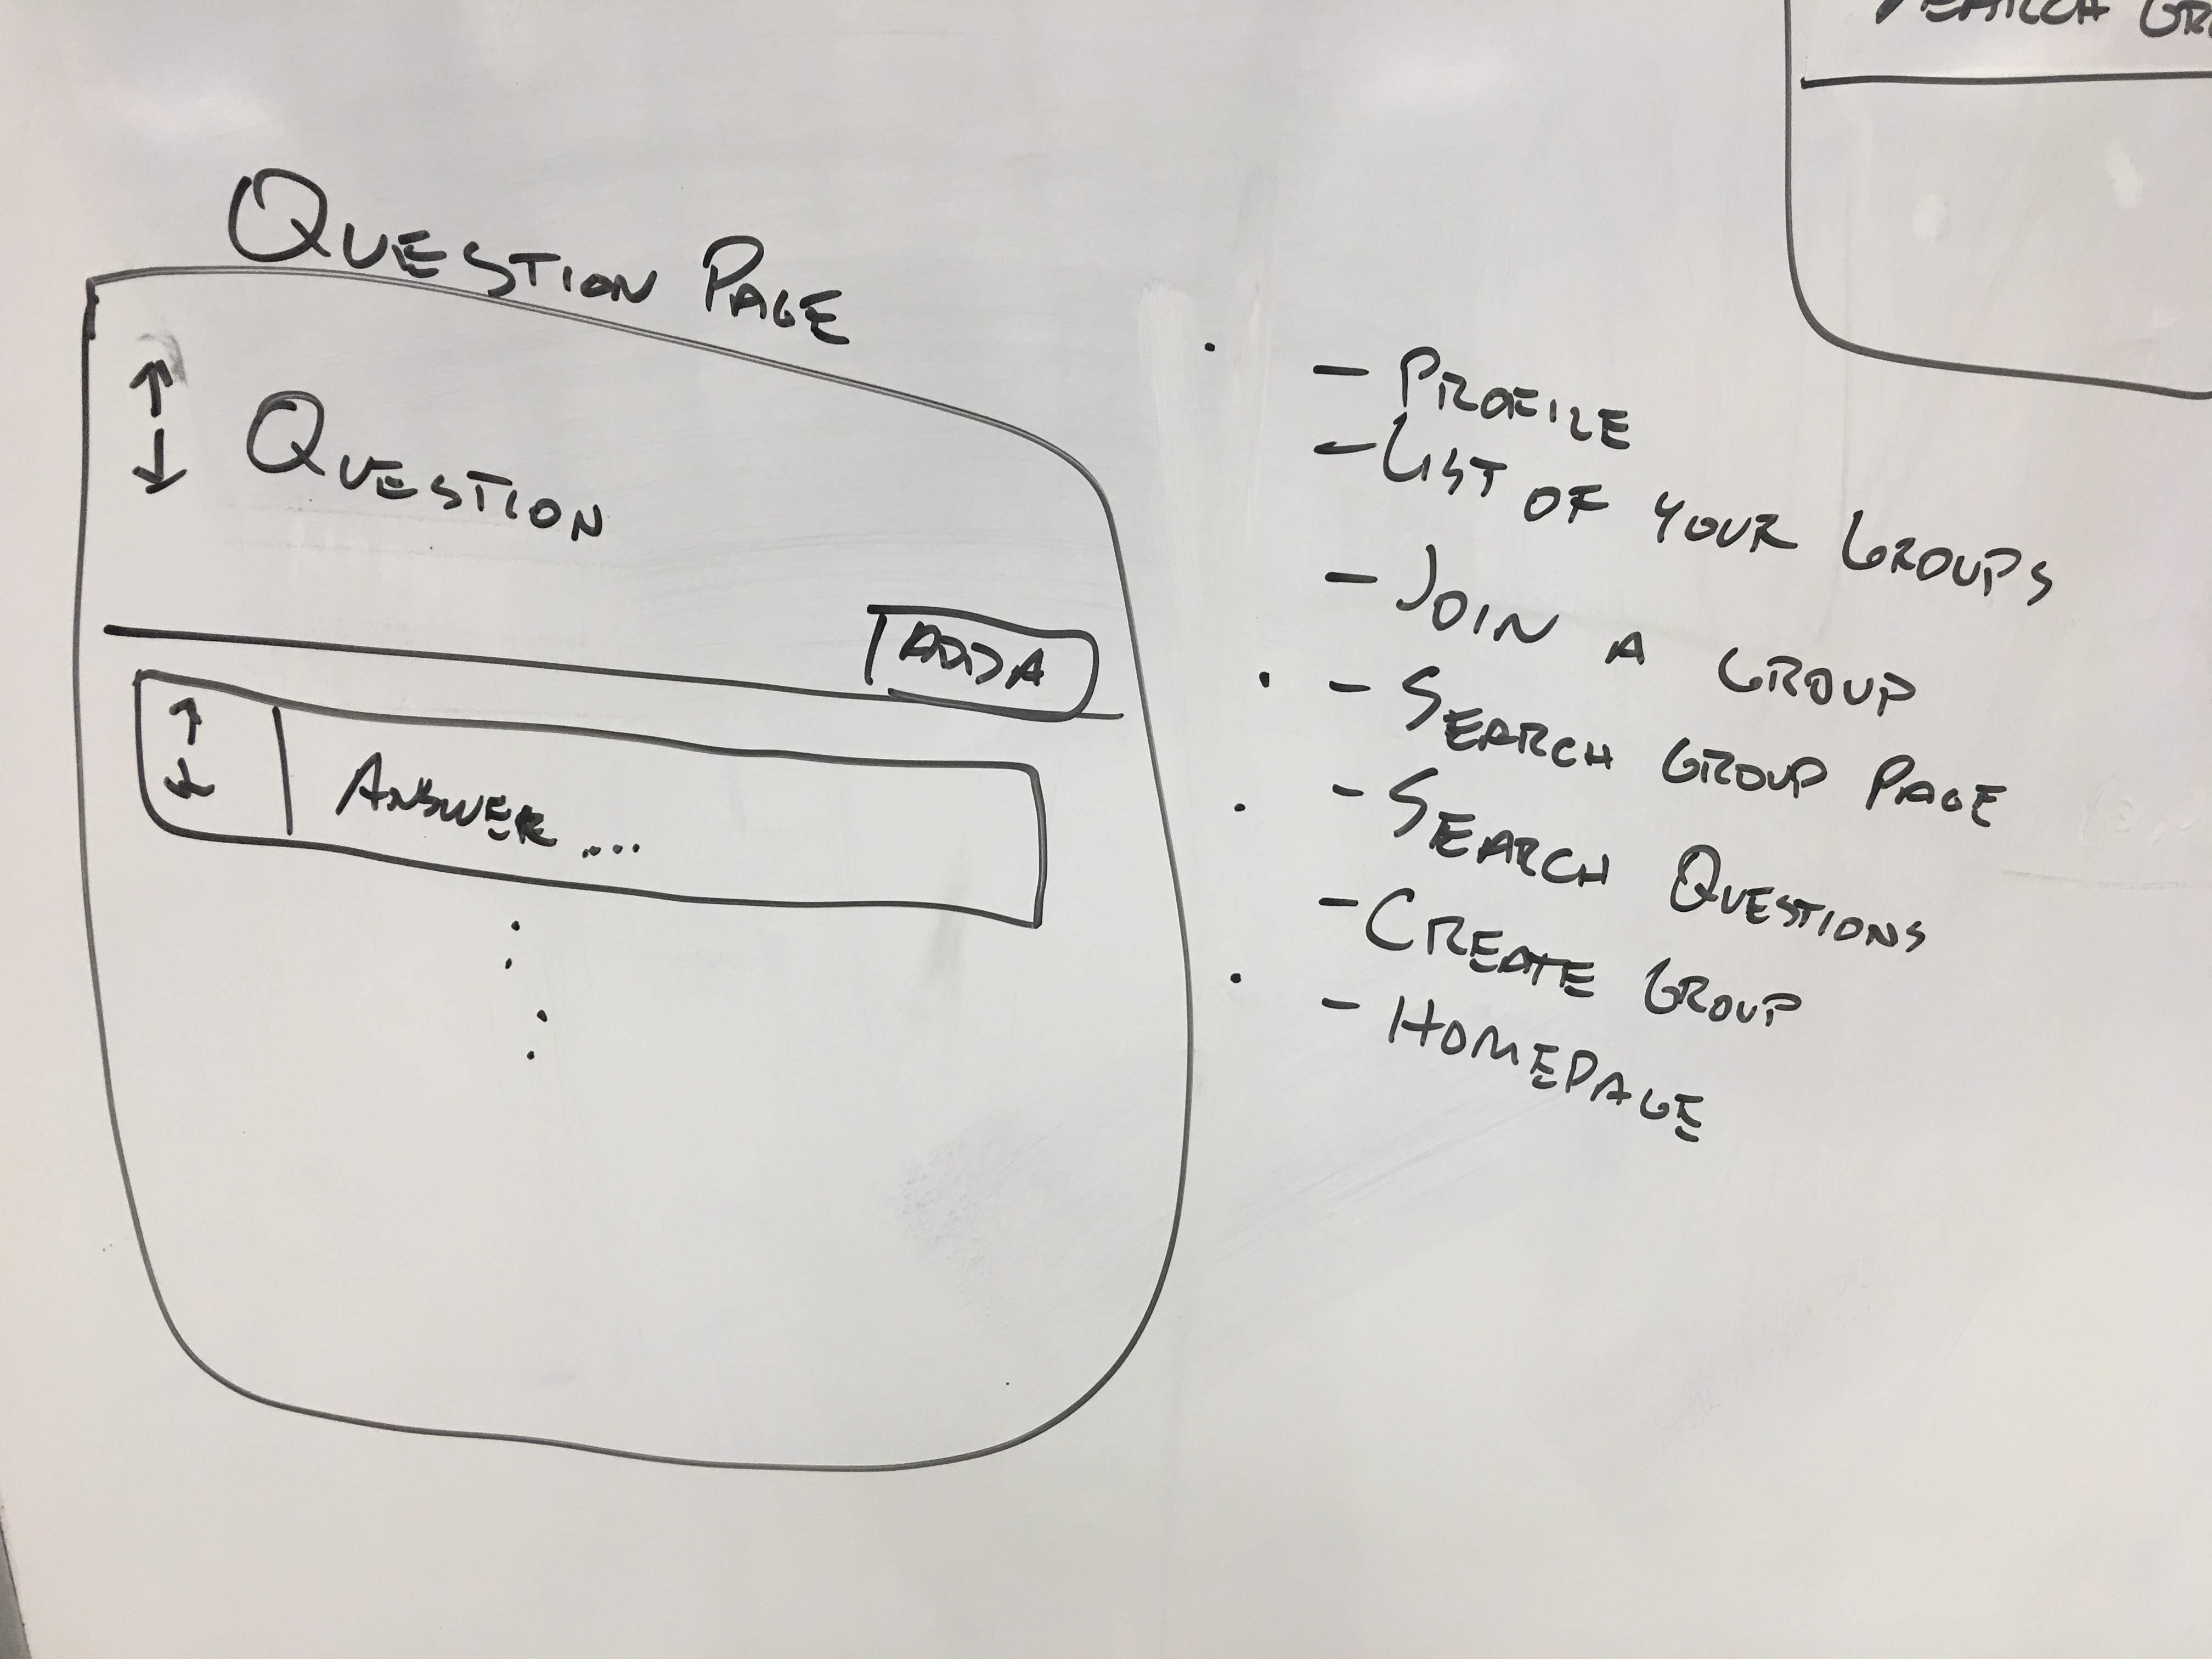 SEARCH
QUESTION PAGE
QUESTION
ADD A
ANSWER ...
- PROFILE
- LIST OF YOUR GROUPS
- JOIN A GROUP
- SEARCH GROUP PAGE
- SEARCH QUESTIONS
- CREATE GROUP
- HOMEPAGE